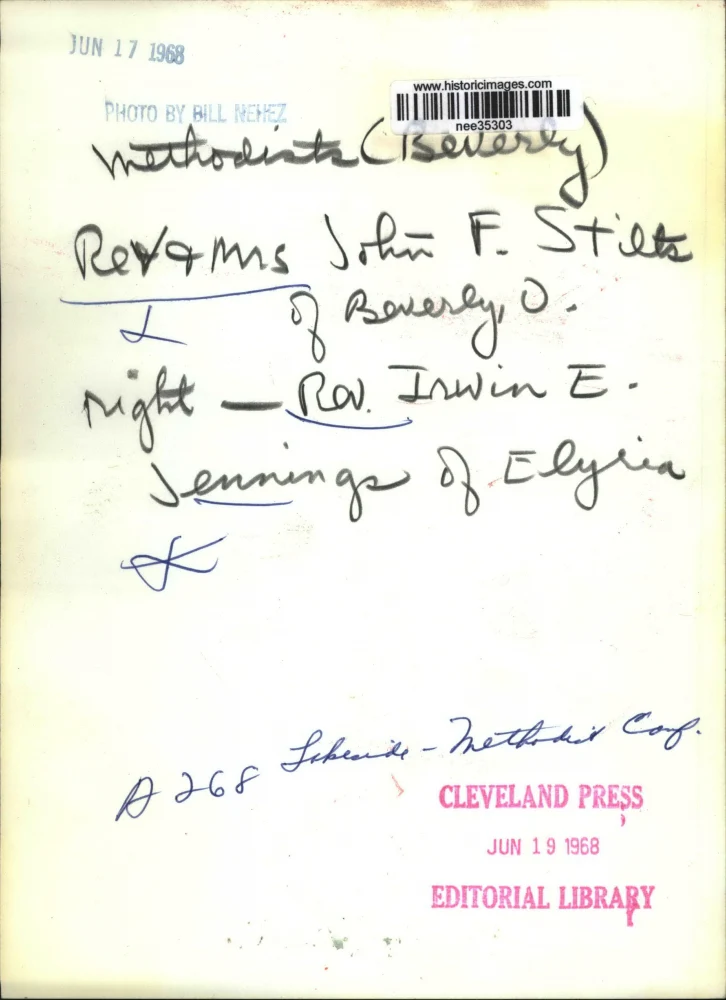 JUN 17 1968
www.historicimages.com
nee35303
PHOTO BY BILL NEHEZ
Methodists (Beverly)
Rev & Mrs John F. Stilts
of Beverly, O.
right — Rev. Irwin E.
Jennings of Elyria
A 268 Lakeside - Methodist Conf.
CLEVELAND PRESS
JUN 19 1968
EDITORIAL LIBRARY